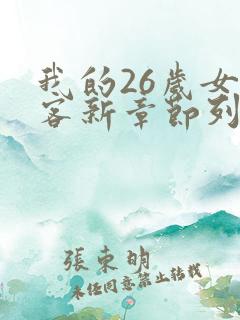 我的26歲女
客新章節列
張東明
未經同意禁止轉載